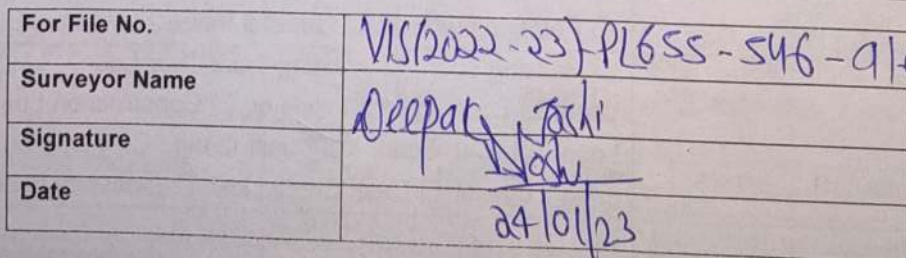 For File No. VIS(2022-23)-PL655-546-91
Surveyor Name Deepak Joshi
Signature Joshi
Date 24/01/23